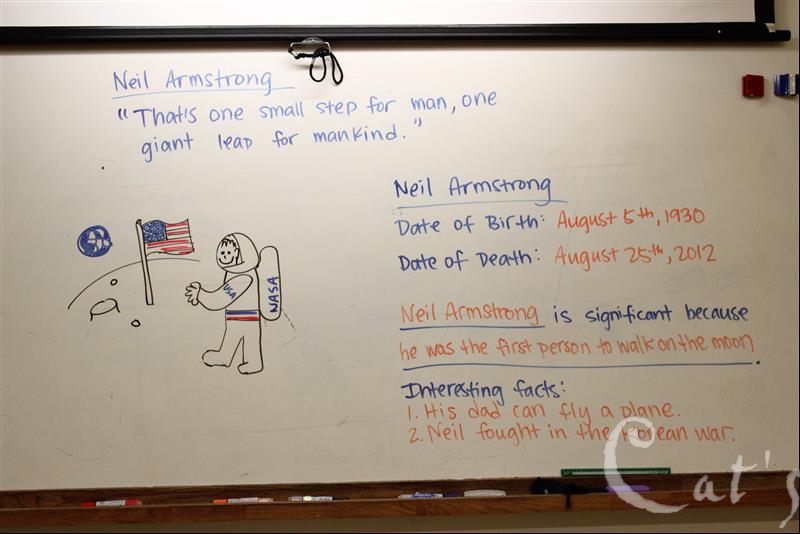 Neil Armstrong
"That's one small step for man, one
giant leap for mankind."
USA
NASA
Neil Armstrong
Date of Birth: August 5th, 1930
Date of Death: August 25th, 2012
Neil Armstrong is significant because
he was the first person to walk on the moon.
Interesting facts:
1. His dad can fly a plane.
2. Neil fought in the Korean war.
Cat's